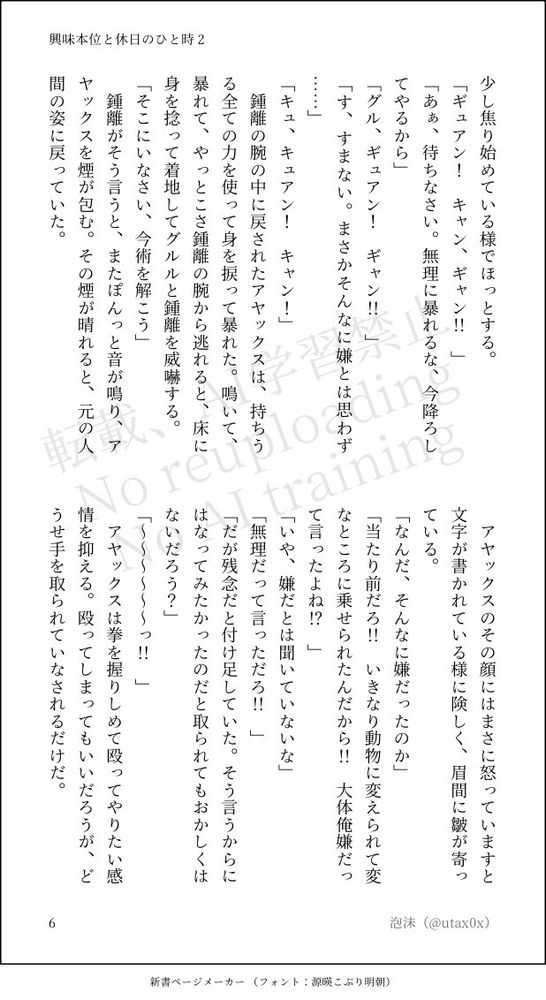 興味本位と休日のひと時２
少し焦り始めている様でほっとする。
「ギュアン！　キャン、ギャン!!　」
「あぁ、待ちなさい。無理に暴れるな、今降ろし
てやるから」
「グル、ギュアン！　ギャン!!　」
「す、すまない。まさかそんなに嫌とは思わず
……」
「キュ、キュアン！　キャン！」
　鍾離の腕の中に戻されたアヤックスは、持ちう
る全ての力を使って身を捩って暴れた。鳴いて、
暴れて、やっとこさ鍾離の腕から逃れると、床に
身を捻って着地してグルルと鍾離を威嚇する。
「そこにいなさい、今術を解こう」
　鍾離がそう言うと、またぽんっと音が鳴り、ア
ヤックスを煙が包む。その煙が晴れると、元の人
間の姿に戻っていた。
　アヤックスのその顔にはまさに怒っていますと
文字が書かれている様に険しく、眉間に皺が寄っ
ている。
「なんだ、そんなに嫌だったのか」
「当たり前だろ!!　いきなり動物に変えられて変
なところに乗せられたんだから!!　大体俺嫌だっ
て言ったよね!?　」
「いや、嫌だとは聞いていないな」
「無理だって言っただろ!!　」
「だが残念だと付け足していた。そう言うからに
はなってみたかったのだと取られてもおかしくは
ないだろう？」
「〜〜〜〜〜〜っ!!　」
　アヤックスは拳を握りしめて殴ってやりたい感
情を抑える。殴ってしまってもいいだろうが、ど
うせ手を取られていなされるだけだ。
転載、AI学習禁止
No reuploading
No AI training
6
泡沫（@utax0x）
新書ページメーカー（フォント：源暎こぶり明朝）